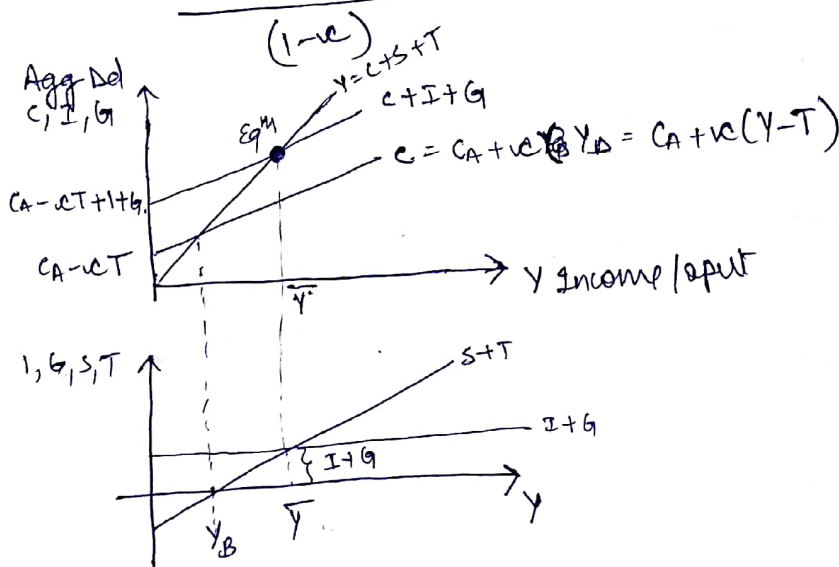 (1-c)
Agg Dd
C, I, G
Y=C+S+T
C+I+G
Eqᵐ
C = CA + c YD = CA + c(Y-T)
CA-cT+I+G
CA-cT
Y Income/oput
Y̅
I, G, S, T
S+T
I+G
I+G
YB
Y̅
Y